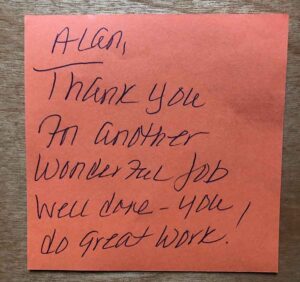 Alan,
Thank you
For another
wonderful job
well done - you
do great work!